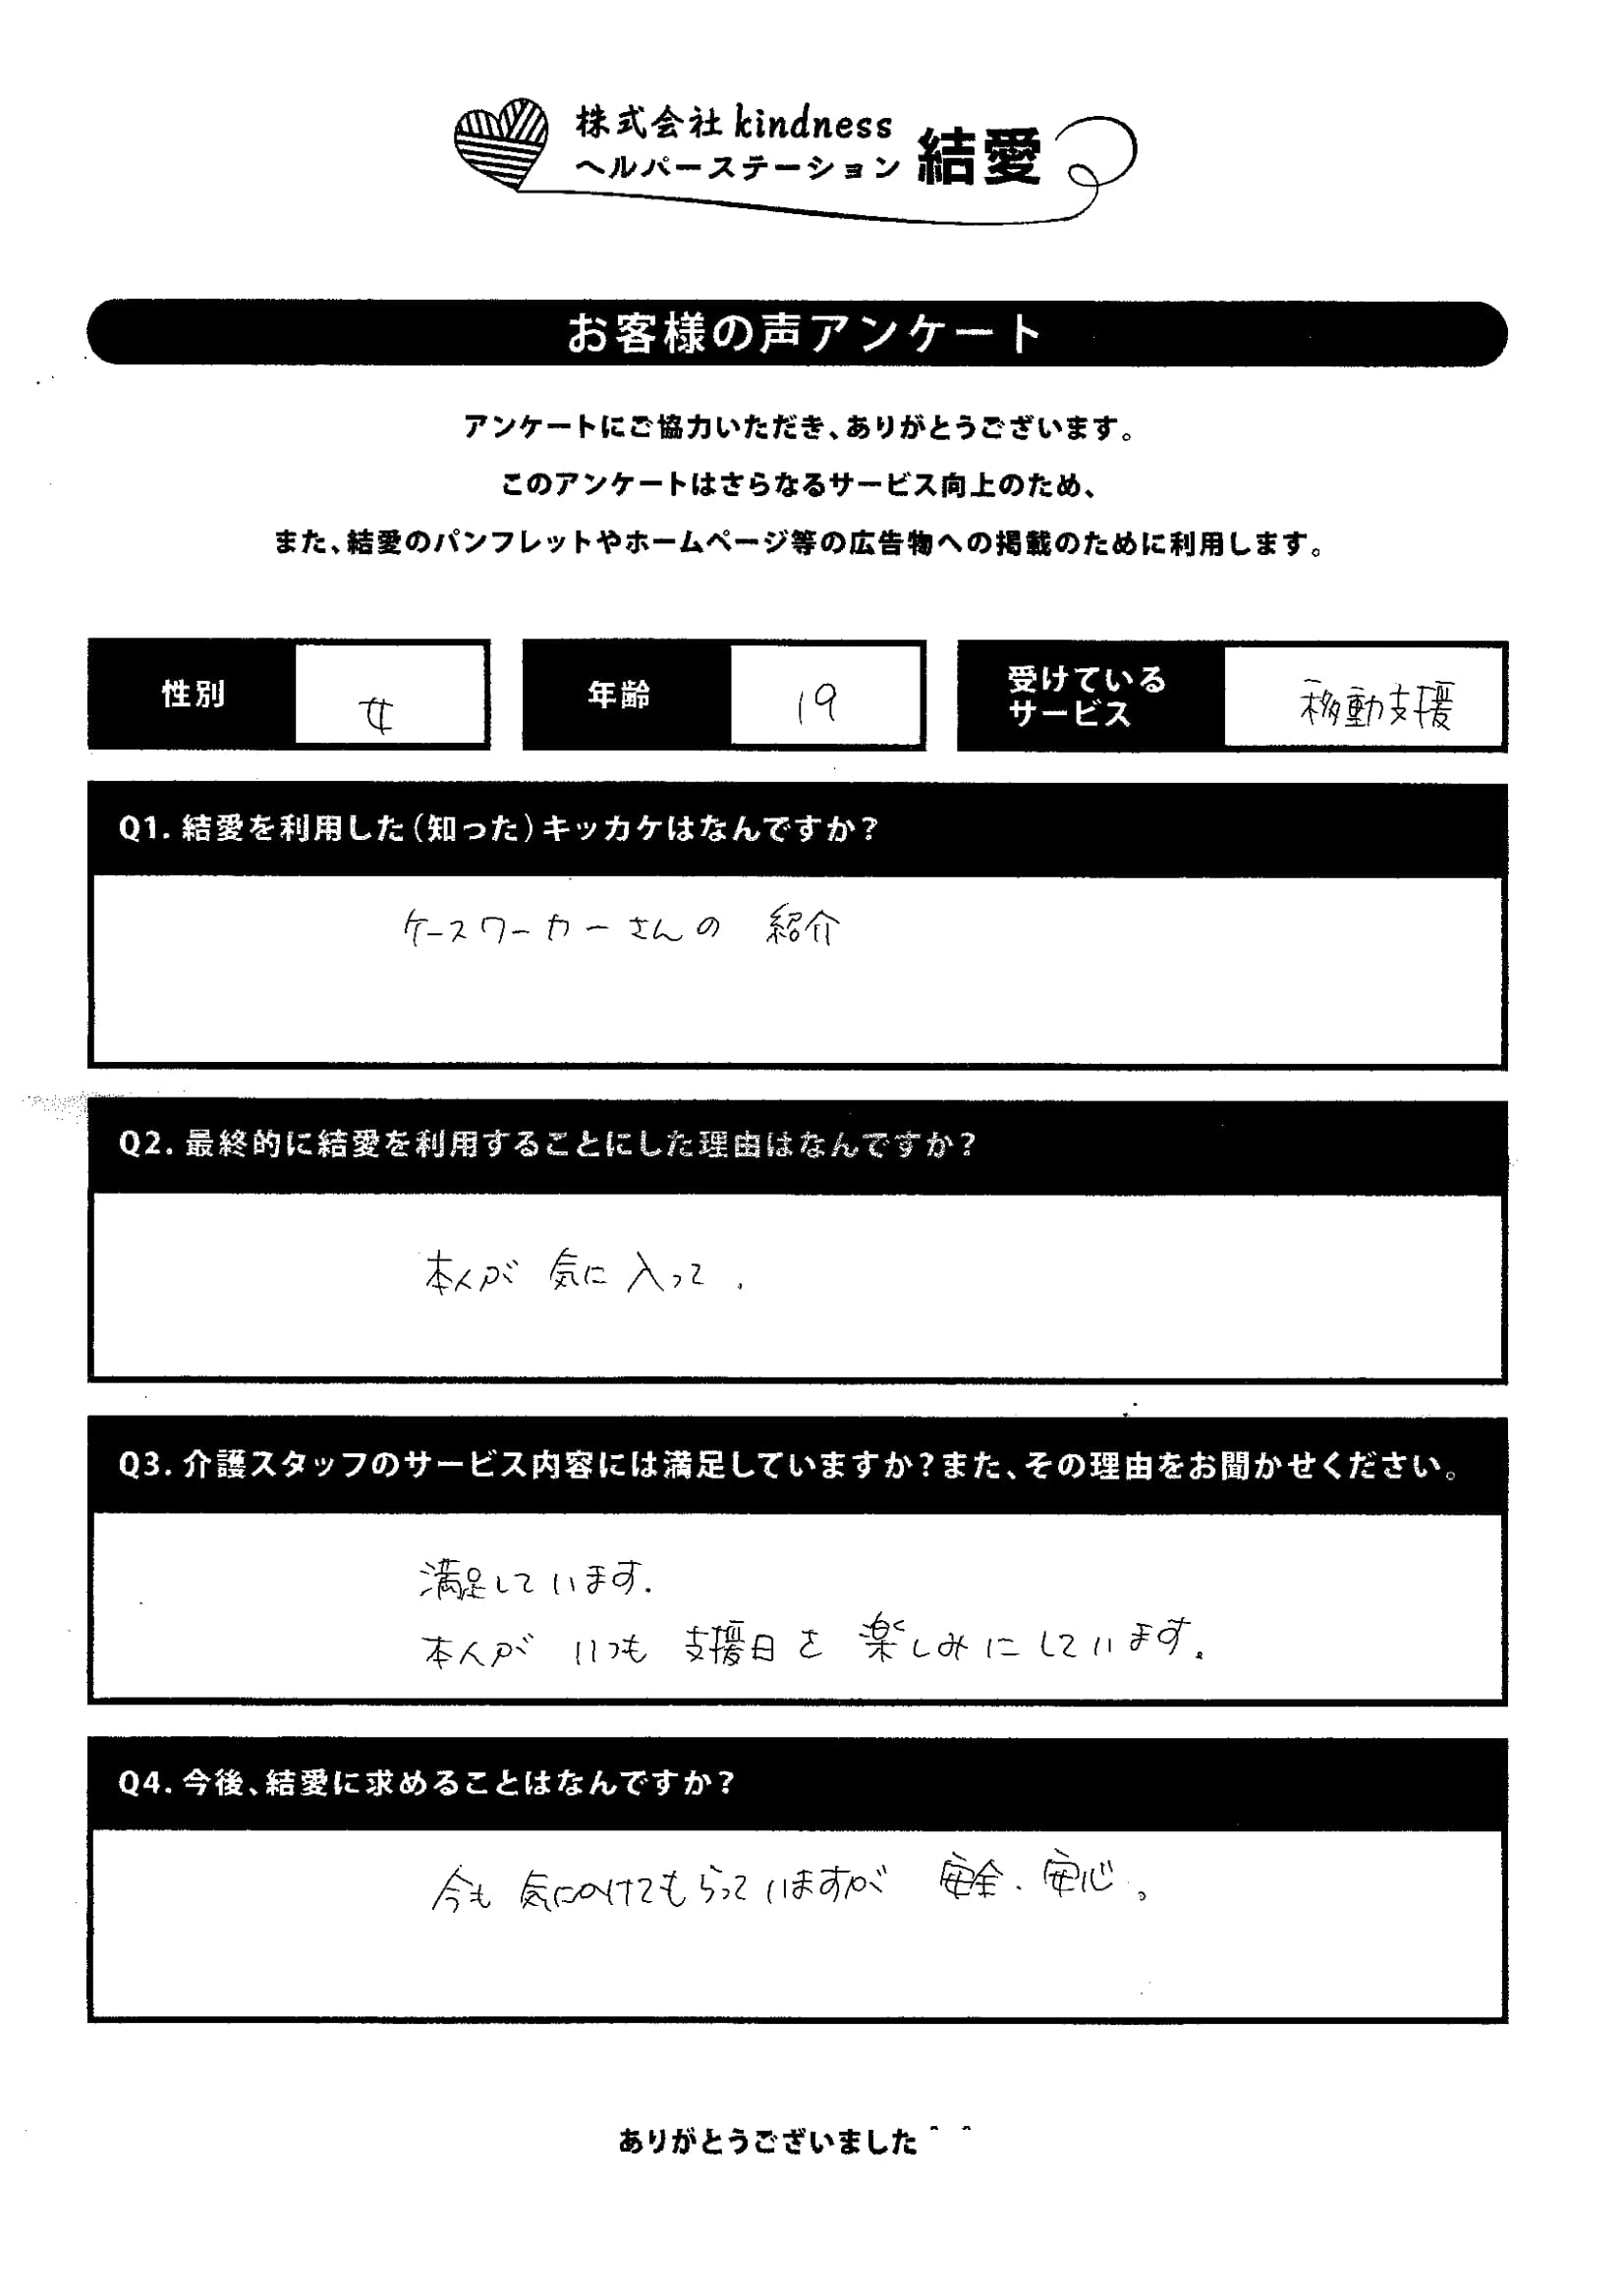 株式会社 kindness
ヘルパーステーション 結愛
お客様の声アンケート
アンケートにご協力いただき、ありがとうございます。
このアンケートはさらなるサービス向上のため、
また、結愛のパンフレットやホームページ等の広告物への掲載のために利用します。
性別 女 年齢 19 受けているサービス 移動支援
Q1. 結愛を利用した(知った)キッカケはなんですか?
ケースワーカーさんの 紹介
Q2. 最終的に結愛を利用することにした理由はなんですか?
本人が 気に入って.
Q3. 介護スタッフのサービス内容には満足していますか?また、その理由をお聞かせください。
満足しています.
本人が いつも 支援日を 楽しみにしています。
Q4. 今後、結愛に求めることはなんですか?
今も 気にかけてもらっていますが 安全、安心。
ありがとうございました^ ^